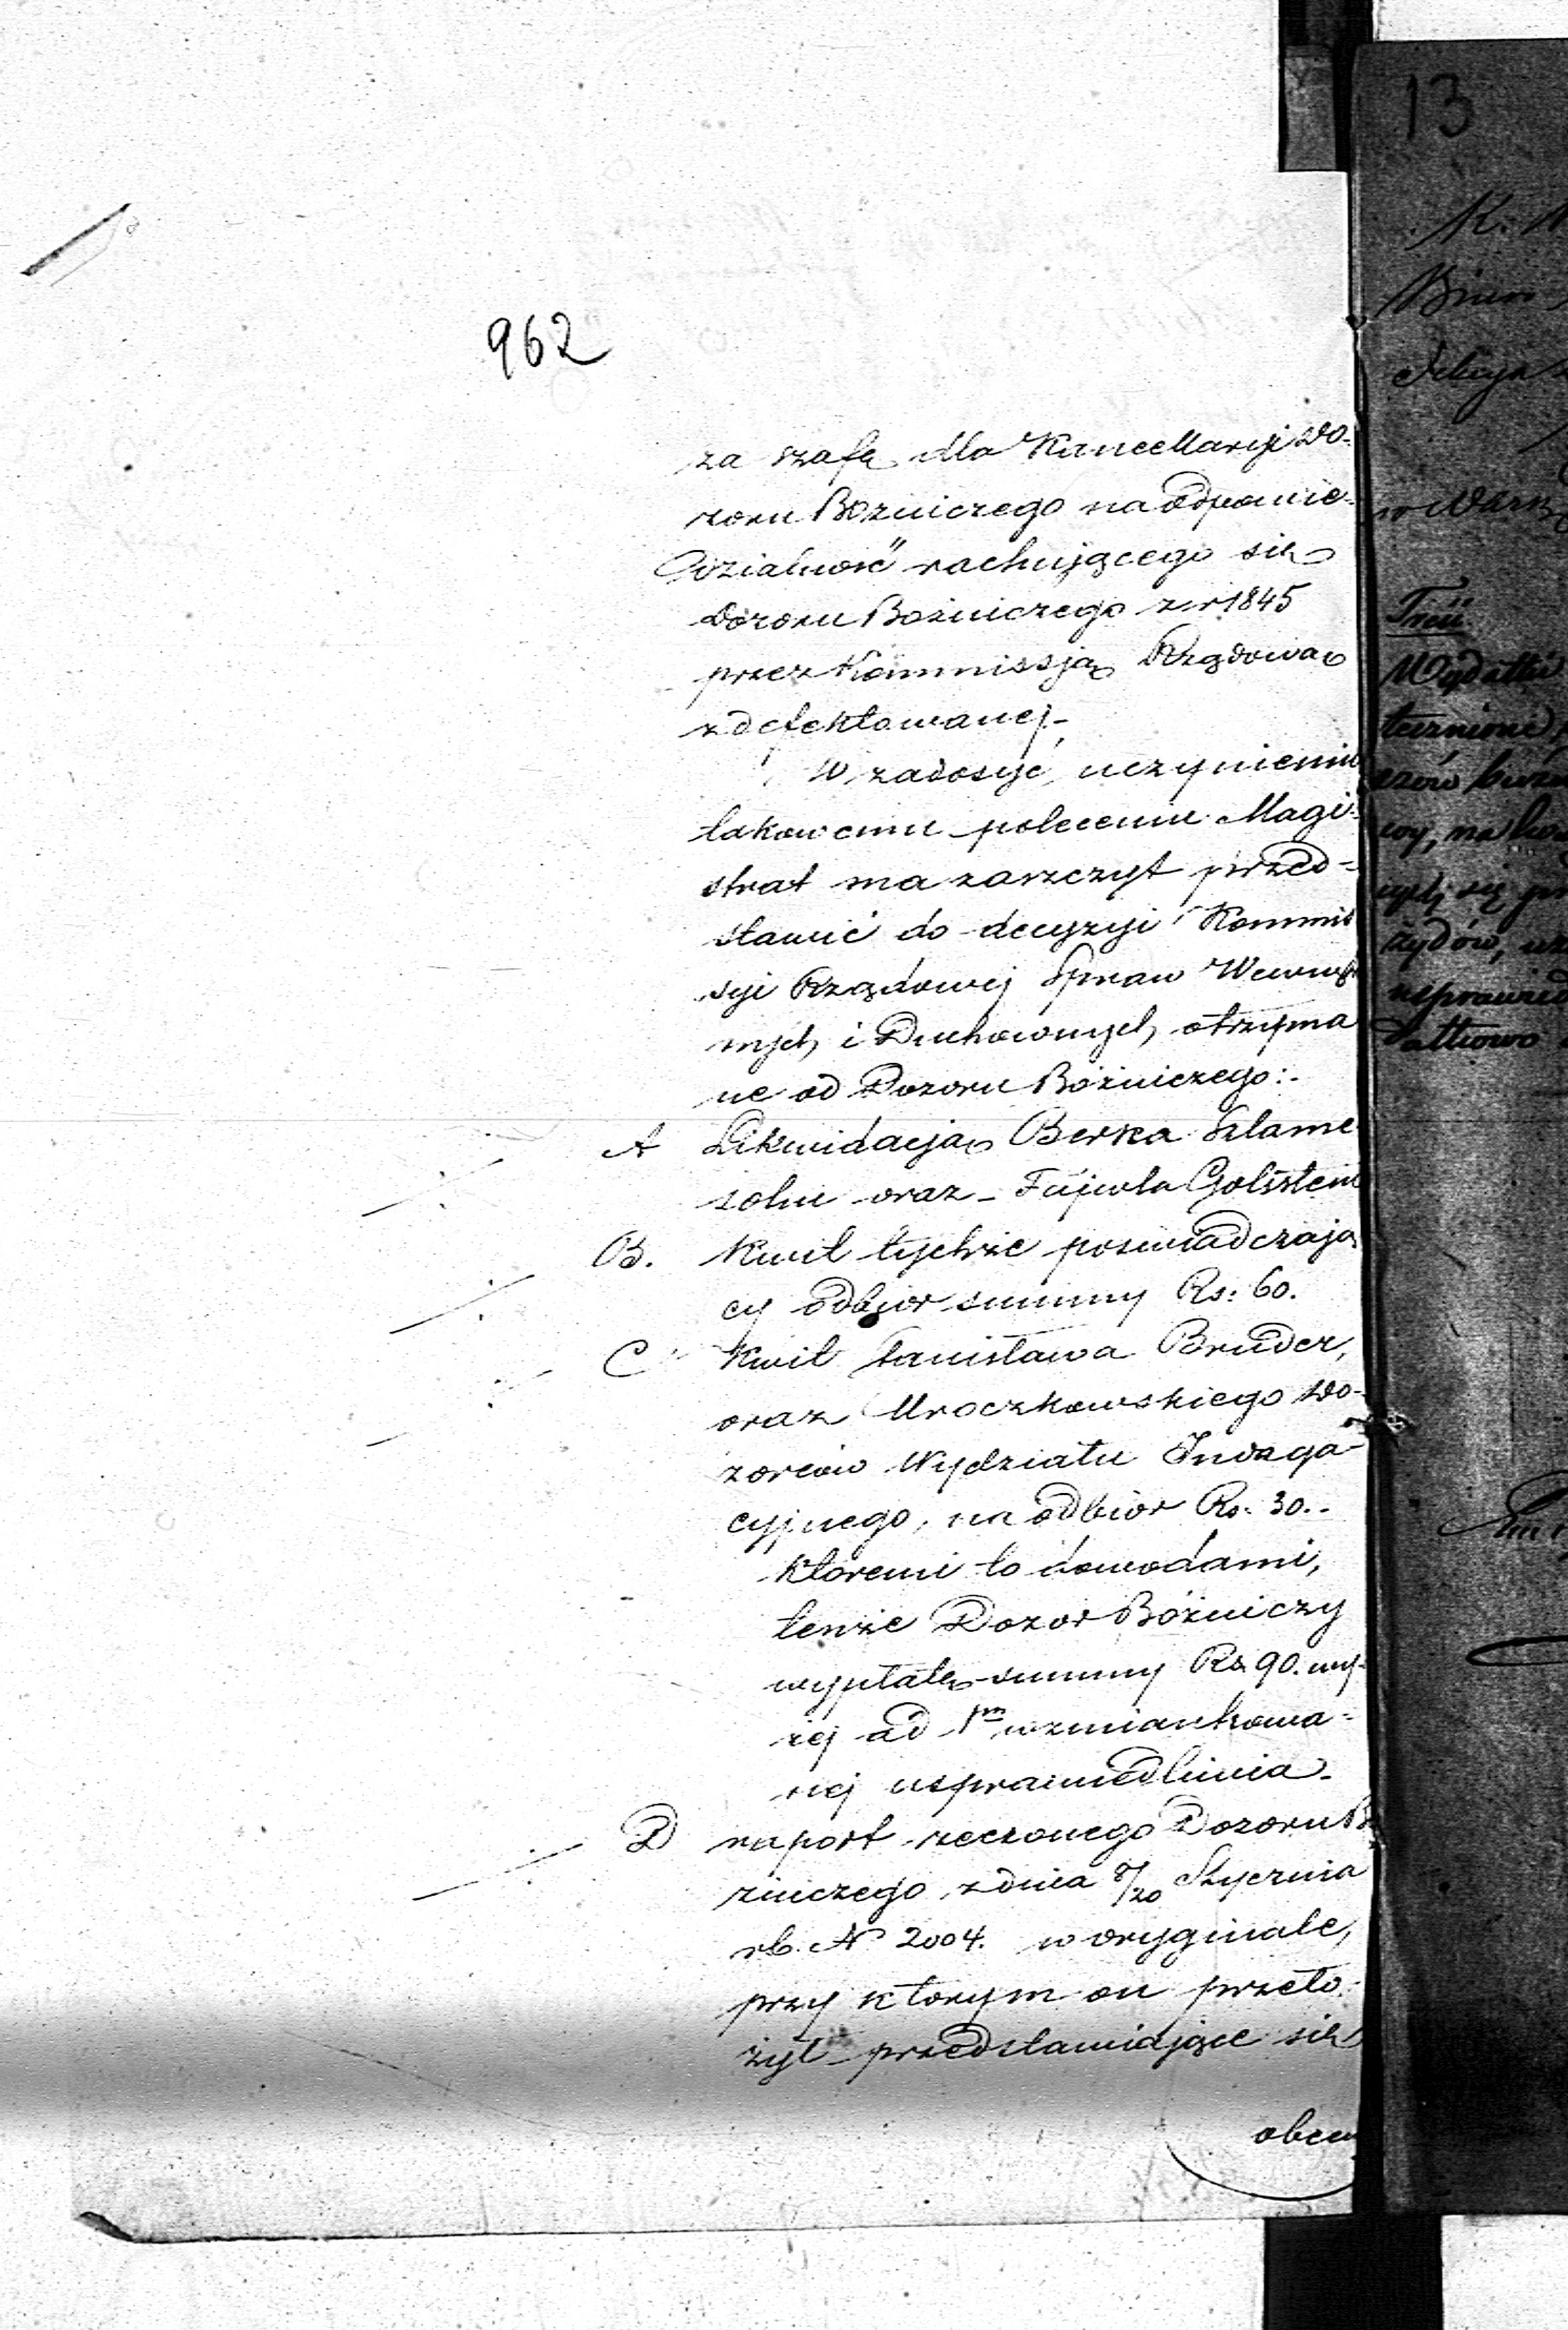 962
za szafę dla Kancellaryi Do-
zoru Bożniczego na odpowie-
dzialność rachującego się
Dozoru Bożniczego z r 1845
przez Kommissją Rządową
zdefektowanej.-
W zadosyć uczynieniu
takowemu poleceniu Magi-
strat ma zaszczyt przed-
stawić do decyzyi Kommis
syi Rządowej Spraw Wewnętr
nych i Duchownych, otrzyma
ne od Dozoru Bożniczego:-
A Likwidacją Berka Szlame
sohn oraz - Fajwla Golsztein
B. Kwit tychże poswiadczają
cy odbior summy Rs: 60.
C Kwit Stanisława Bruder,
oraz Mroczkowskiego Do-
zorców Wydziału Indaga-
cyjnego, na odbior Rs. 30.-
któremi to dowodami,
tenże Dozor Bożniczy
wypłatę summy Rs 90. wy-
żej ad 1m wzmiankowa-
nej usprawiedliwia.
D raport rzeczonego Dozoru Bo
zniczego z dnia 8/20 Stycznia
rb. N 2004. w oryginale,
przy którym on przeło-
żył przedstawiające się
obecn
13
K.
Biuro
Sekcya
w Warsz
Treść
Wydatki
szów
wy, na
żydów,